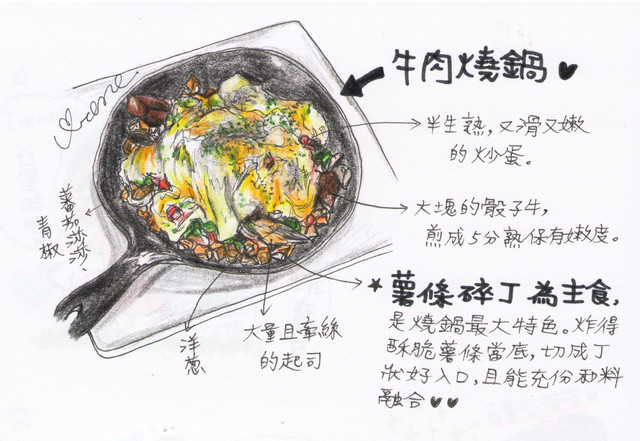 牛肉燒鍋♥
Irene.
半生熟,又滑又嫩
的炒蛋。
大塊的骰子牛,
煎成5分熟保有嫩度。
蕃茄莎莎、
青椒
洋蔥
大量且牽絲
的起司
★薯條碎丁為主食,
是燒鍋最大特色。炸得
酥脆薯條當底,切成丁
狀好入口,且能充份和料
融合♥♥